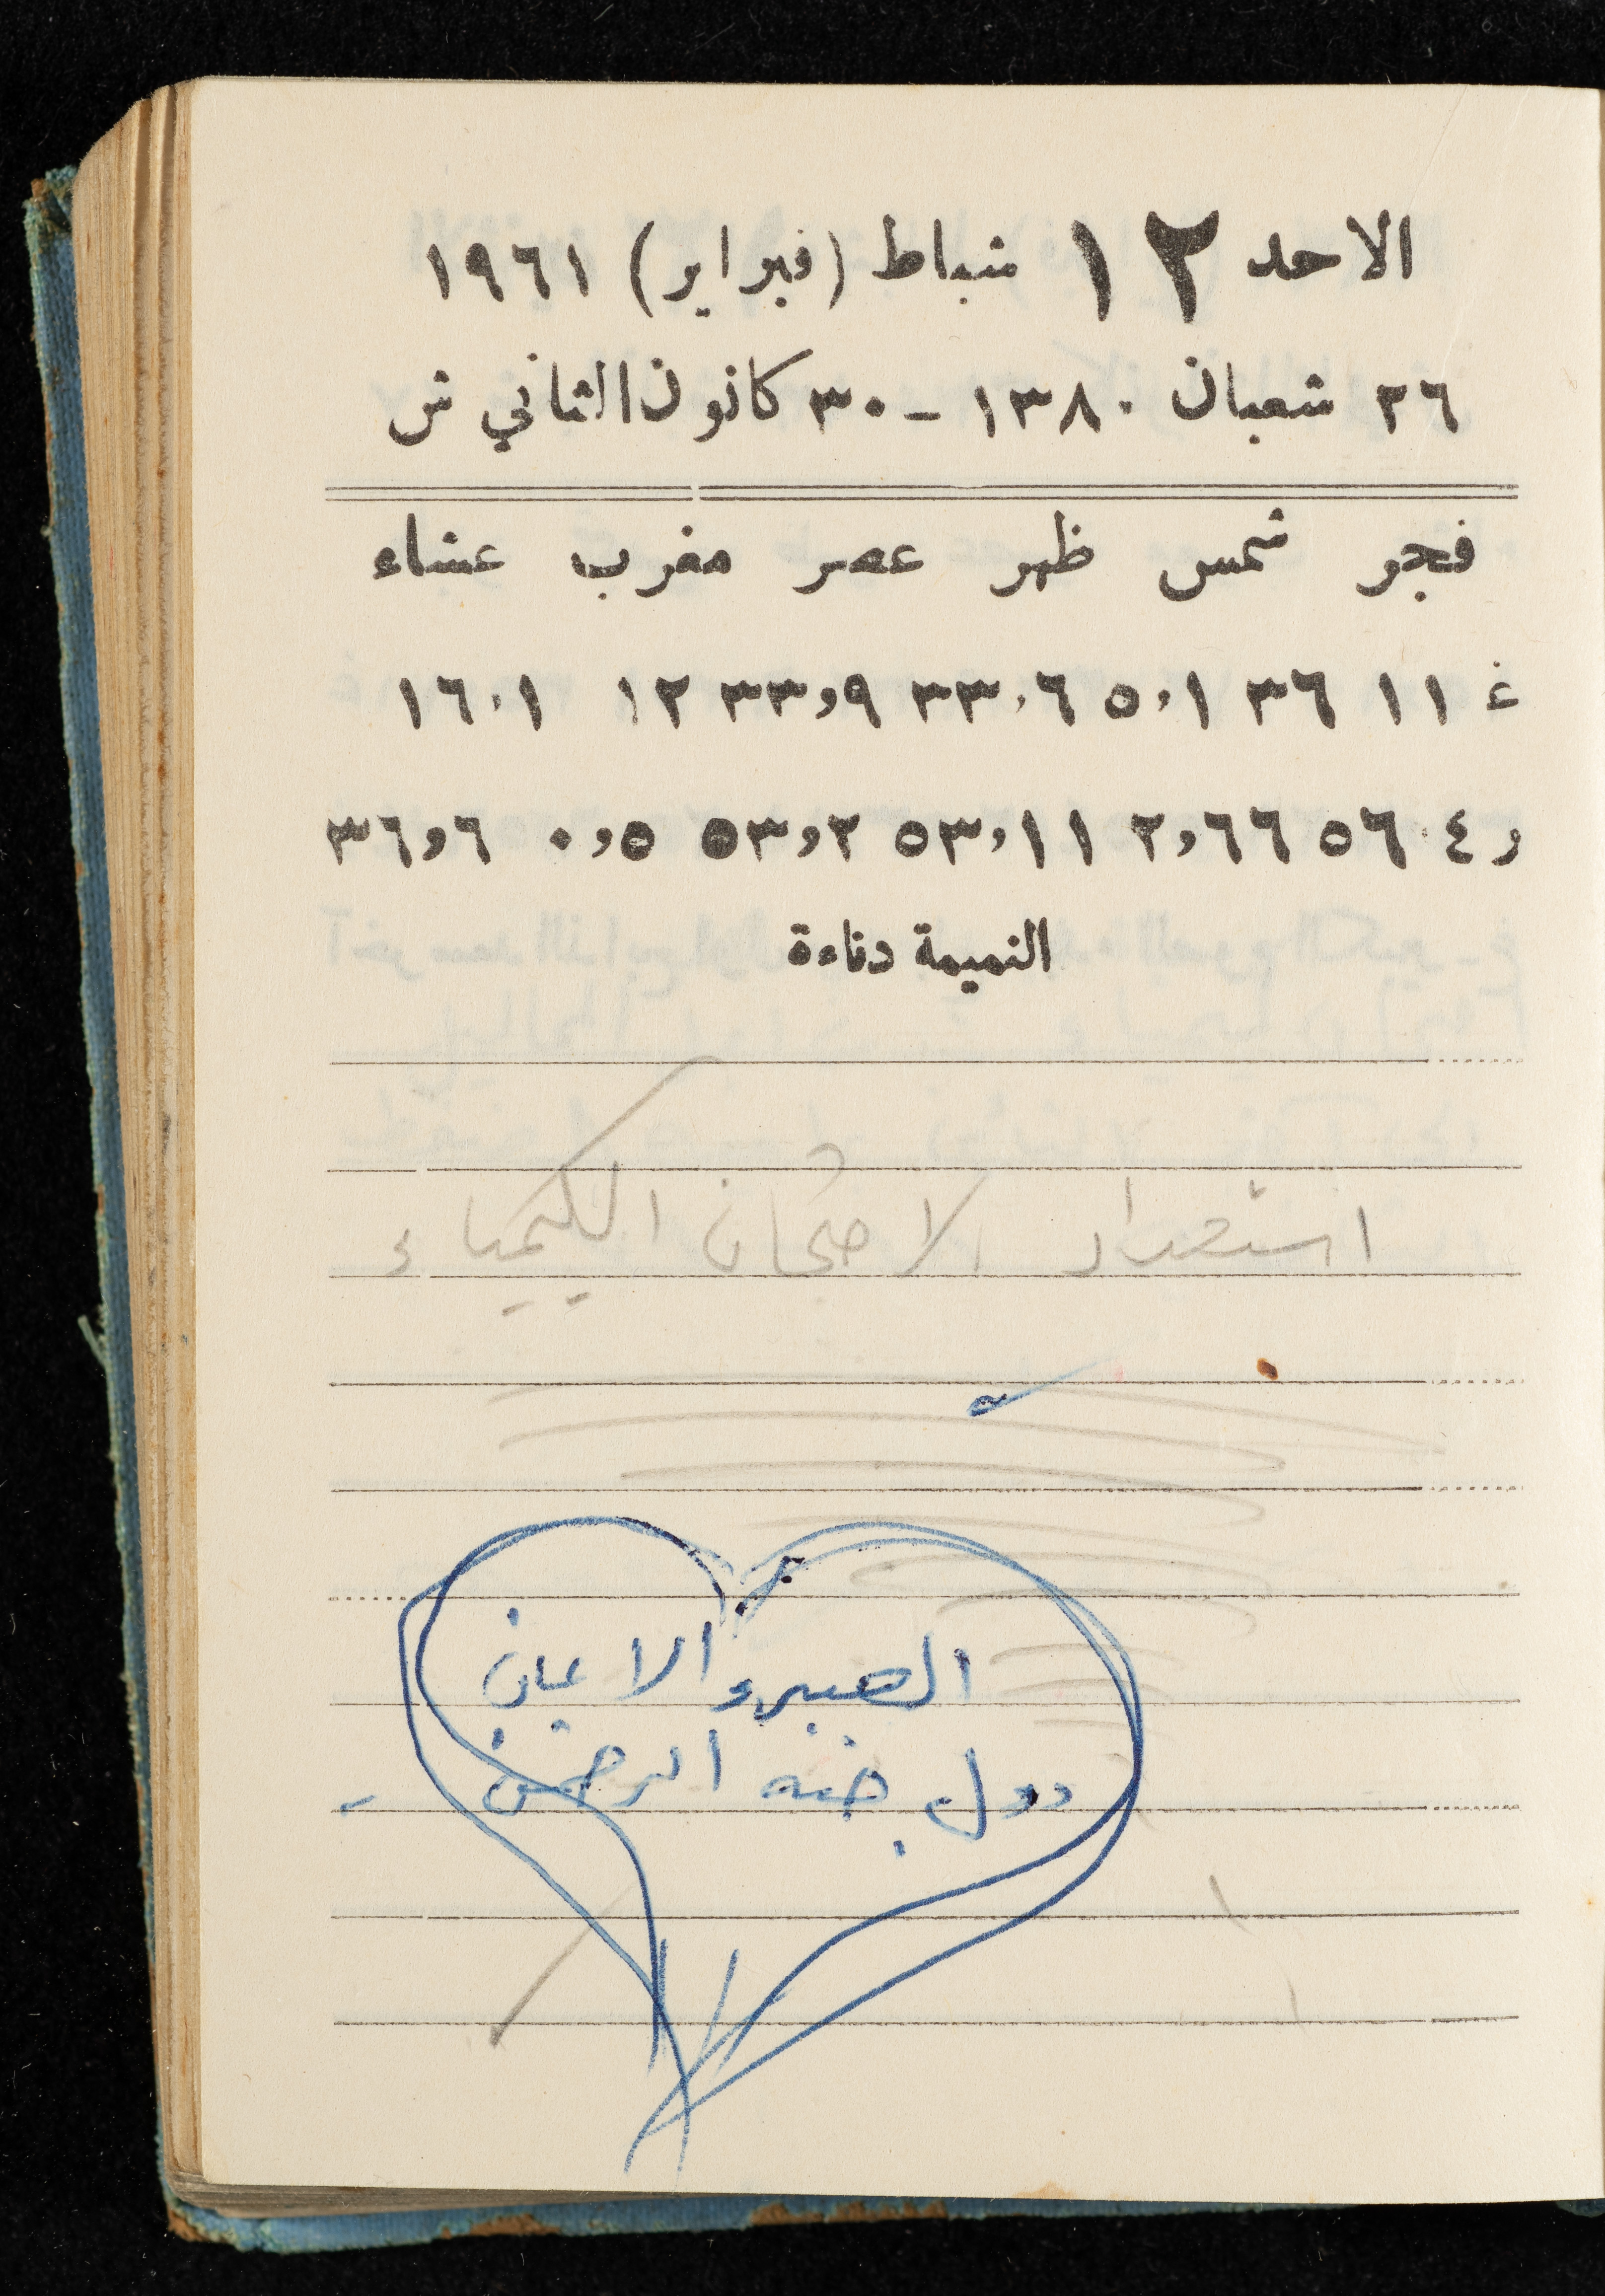 الاحد ١٢ شباط (فبراير) ١٩٦١
٢٦ شعبان ١٣٨٠ - ٣٠ كانون الثاني ش
فجر شمس ظهر عصر مغرب عشاء
غ ١١ ٣٦ ٥،١ ٣٣،٦ ٣٣،٩ ١٢ ١٦،١
و ٤ ٥٦ ٢،٦٦ ٥٣،١١ ٥٣،٢ ٠،٥ ٣٦،٦
النميمة دناءة
استعداد لامتحان الكيمياء
الصبر والايمان
جنه الرحمن